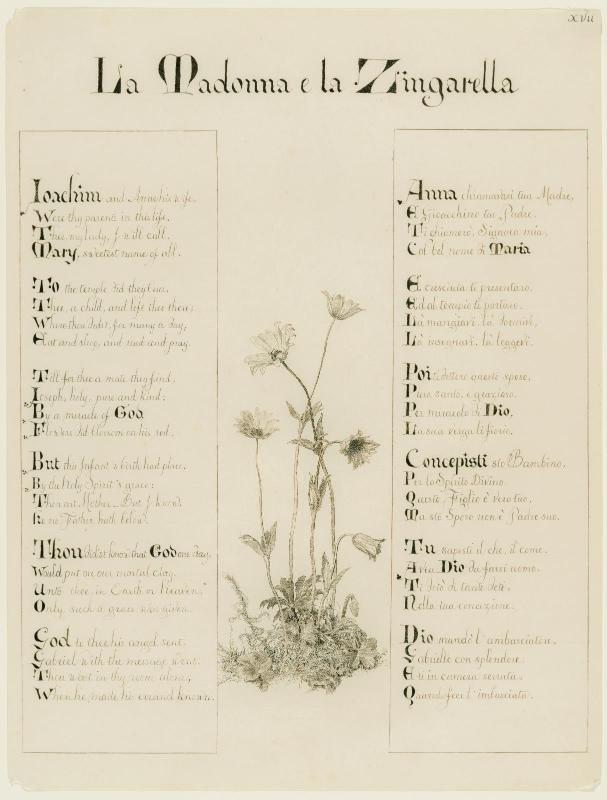 XVII
La Madonna e la Zingarella
Ioachim and Annah's wife,
Were thy parents in this life,
Thee, my lady, I will call,
Mary, sweetest name of all.
To the temple did they bear
Thee, a child, and left thee there;
Where thou didst, for many a day,
Eat and sleep, and read and pray.
Till for thee a mate they find,
Joseph, holy, pure and kind:
By a miracle of God,
Flowers did blossom on his rod.
But this Infant's birth had place,
By the Holy Spirit's grace:
Thou art Mother_ But I know
He no Father hath below.
Thou didst know that God one day,
Would put on our mortal clay.
Unto thee, in Earth or Heaven,
Only, such a grace was given.
God to thee his angel sent,
Gabriel with the message went:
Thou wert in thy room alone,
When he made his errand known.
Anna chiamavasi tua Madre,
E Gioacchino tuo Padre.
Ti chiamerò, Signora mia,
Col bel nome di Maria
E cresciuta ti presentaro.
Ed al tempio ti portaro.
Là mangiavi, là dormivi,
Là insegnavi, là leggevi.
Poi ti dettero questo sposo,
Puro, santo, e grazioso.
Per miracolo di Dio,
La sua verga li fiorio.
Concepisti sto Bambino,
Per lo Spirito Divino.
Questo Figlio è vero tuo,
Ma sto Sposo non è Padre suo.
Tu sapesti il che, il come,
Avea Dio da farsi uomo.
Ti dotò di tante doti,
Nella tua concezione.
Dio mandò l'ambasciatore,
Gabriello con splendore.
Eri in camera serrata,
Quando fece l'imbasciata.